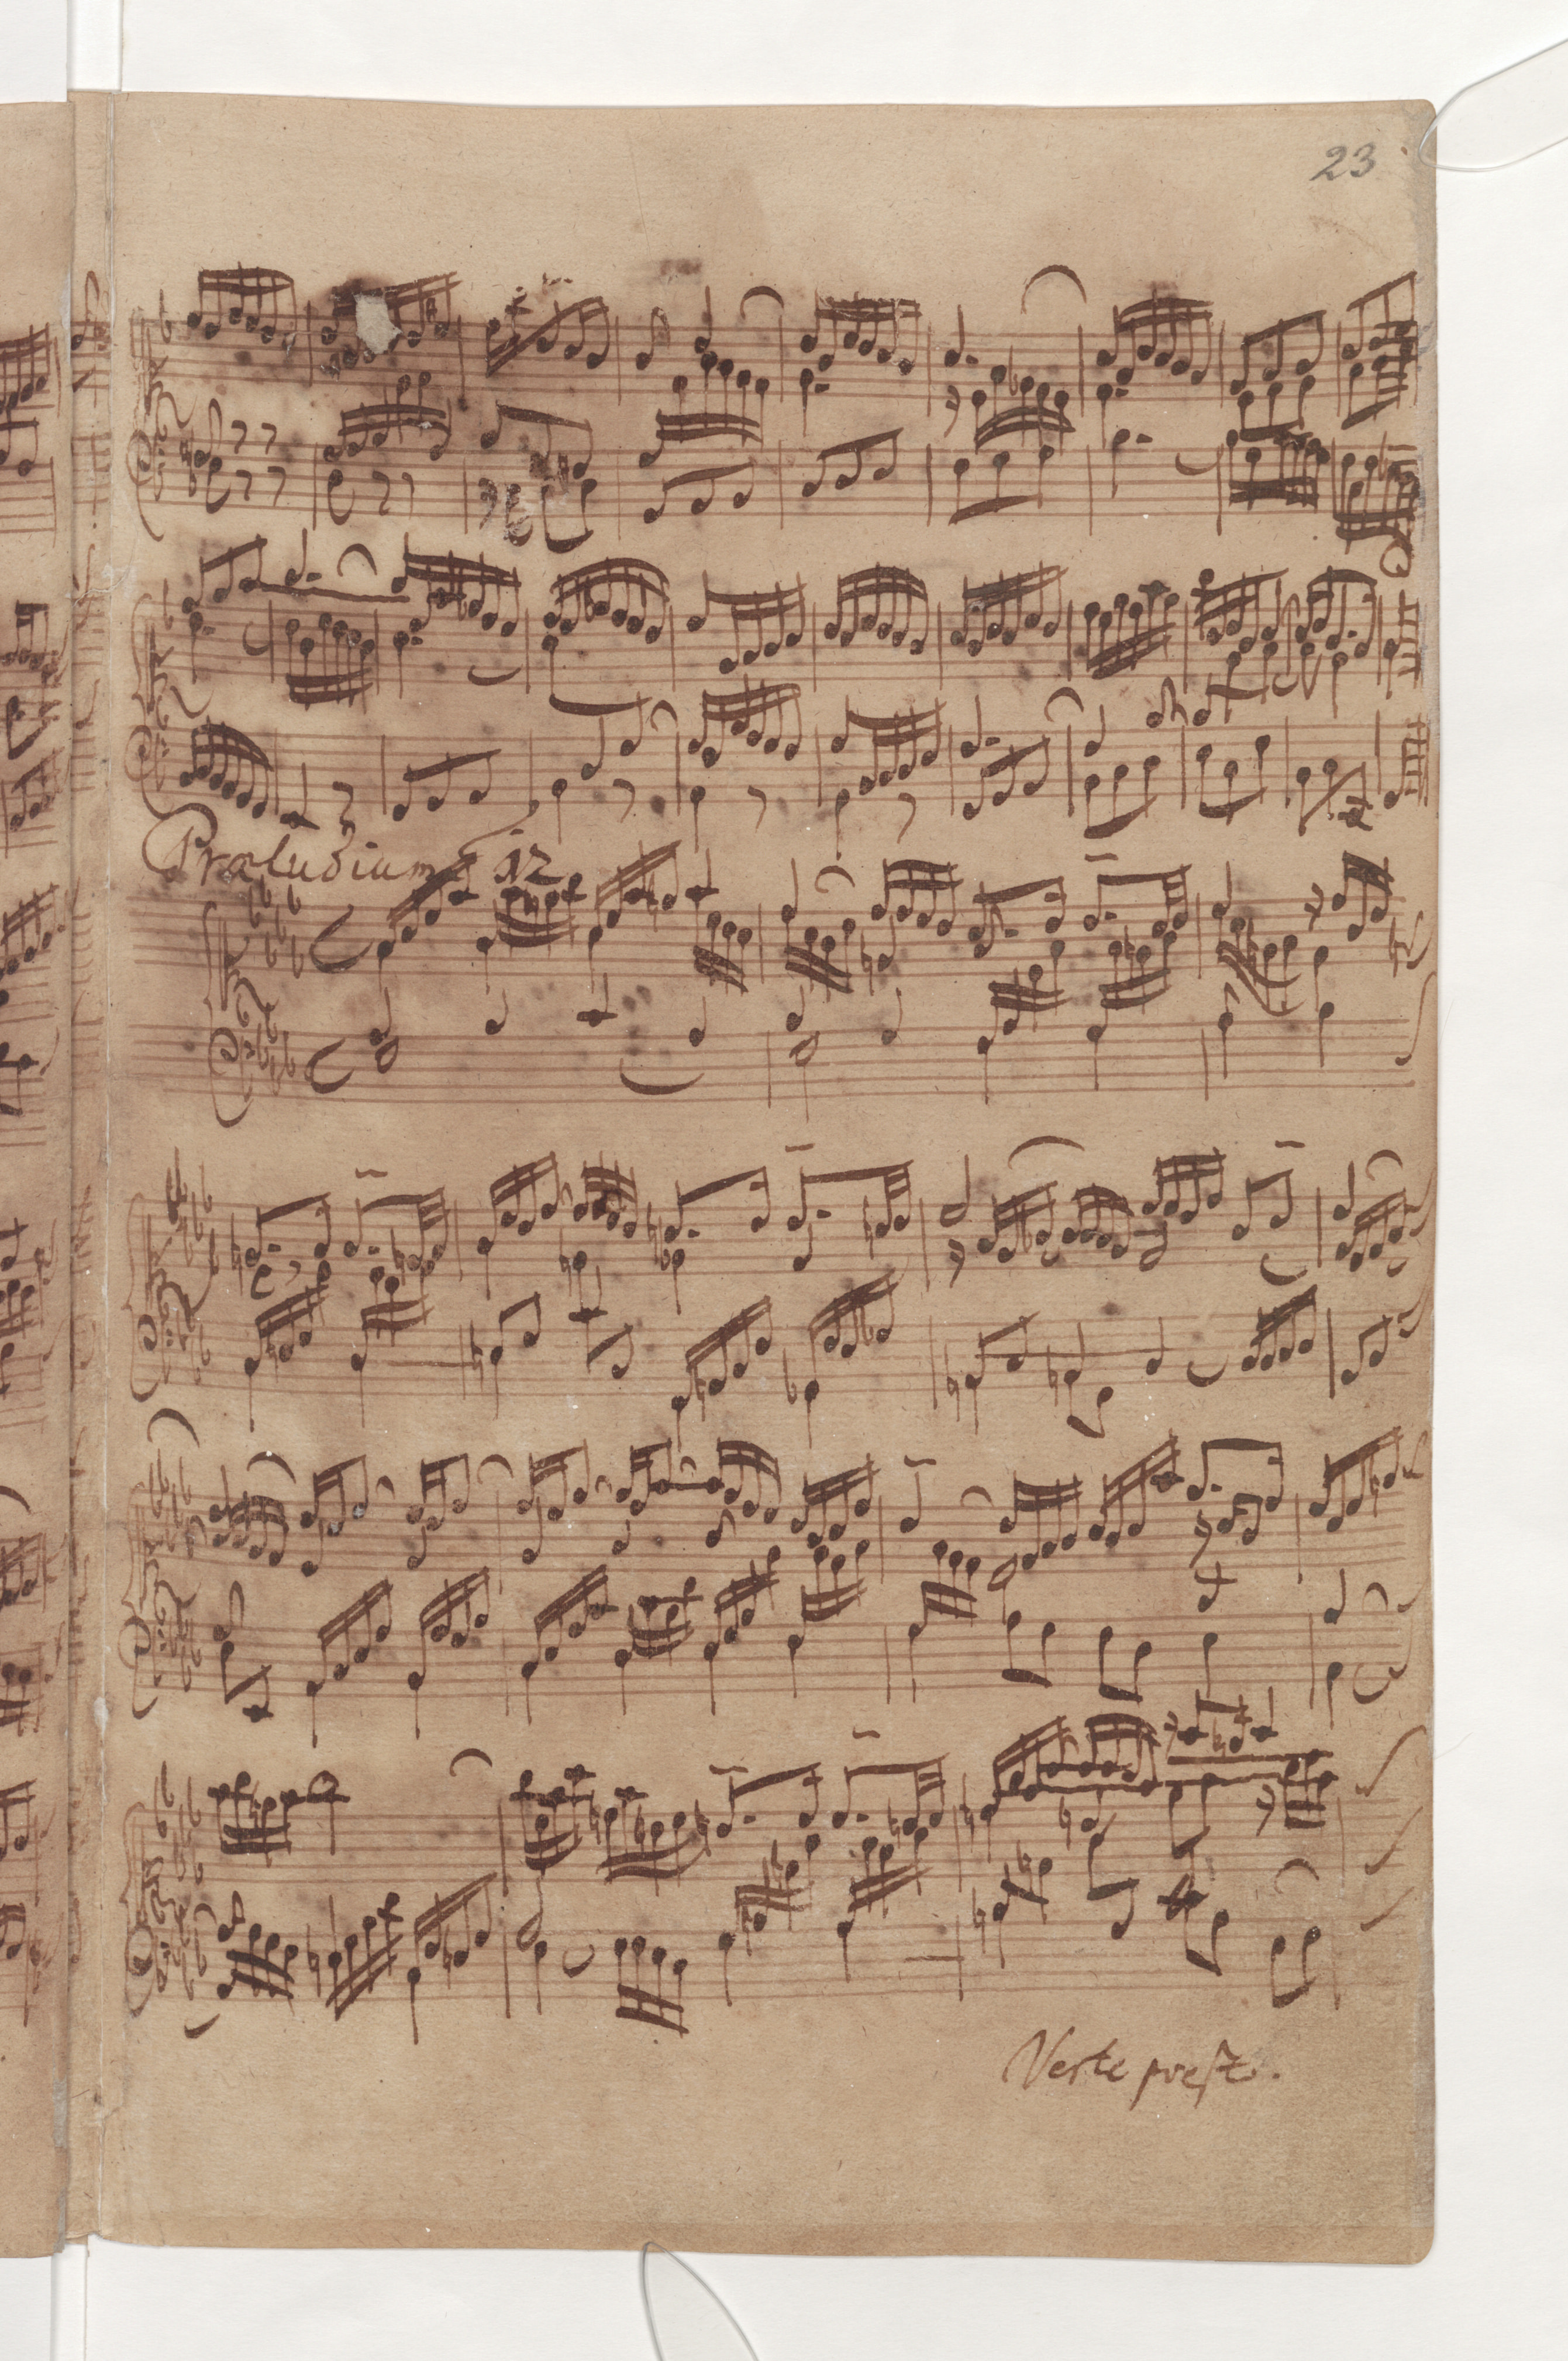 23
Præludium 12
Verte prest.